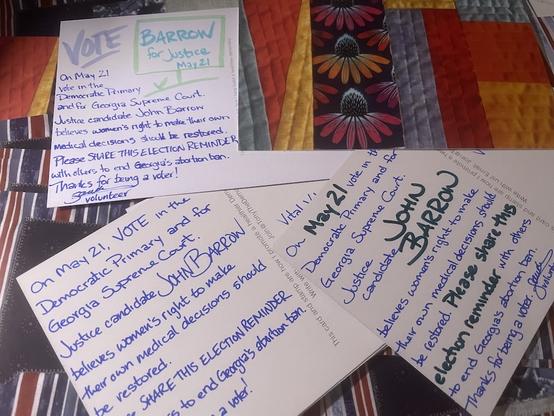 VOTE
BARROW
for Justice
May 21
On May 21
vote in the
Democratic Primary
and for Georgia Supreme Court.
Justice candidate John Barrow
believes women's right to make their own
medical decisions should be restored.
Please SHARE THIS ELECTION REMINDER
with others to end Georgia's abortion ban.
Thanks for being a voter!
volunteer
On May 21, VOTE in the
Democratic Primary and for
Georgia Supreme Court.
Justice candidate JOHN BARROW
believes women's right to make
their own medical decisions should
be restored.
SHARE THIS ELECTION REMINDER
to end Georgia's abortion ban.
a voter!
This card and stamp are how I promote a healthier De
On May 21 vote in th
Democratic Primary and for
Georgia Supreme Court.
Justice
candidate JOHN
BARROW
believes women's right to make
their own medical decisions should
be restored. Please share this
election reminder with others
to end Georgia's abortion ban.
Thanks for being a voter